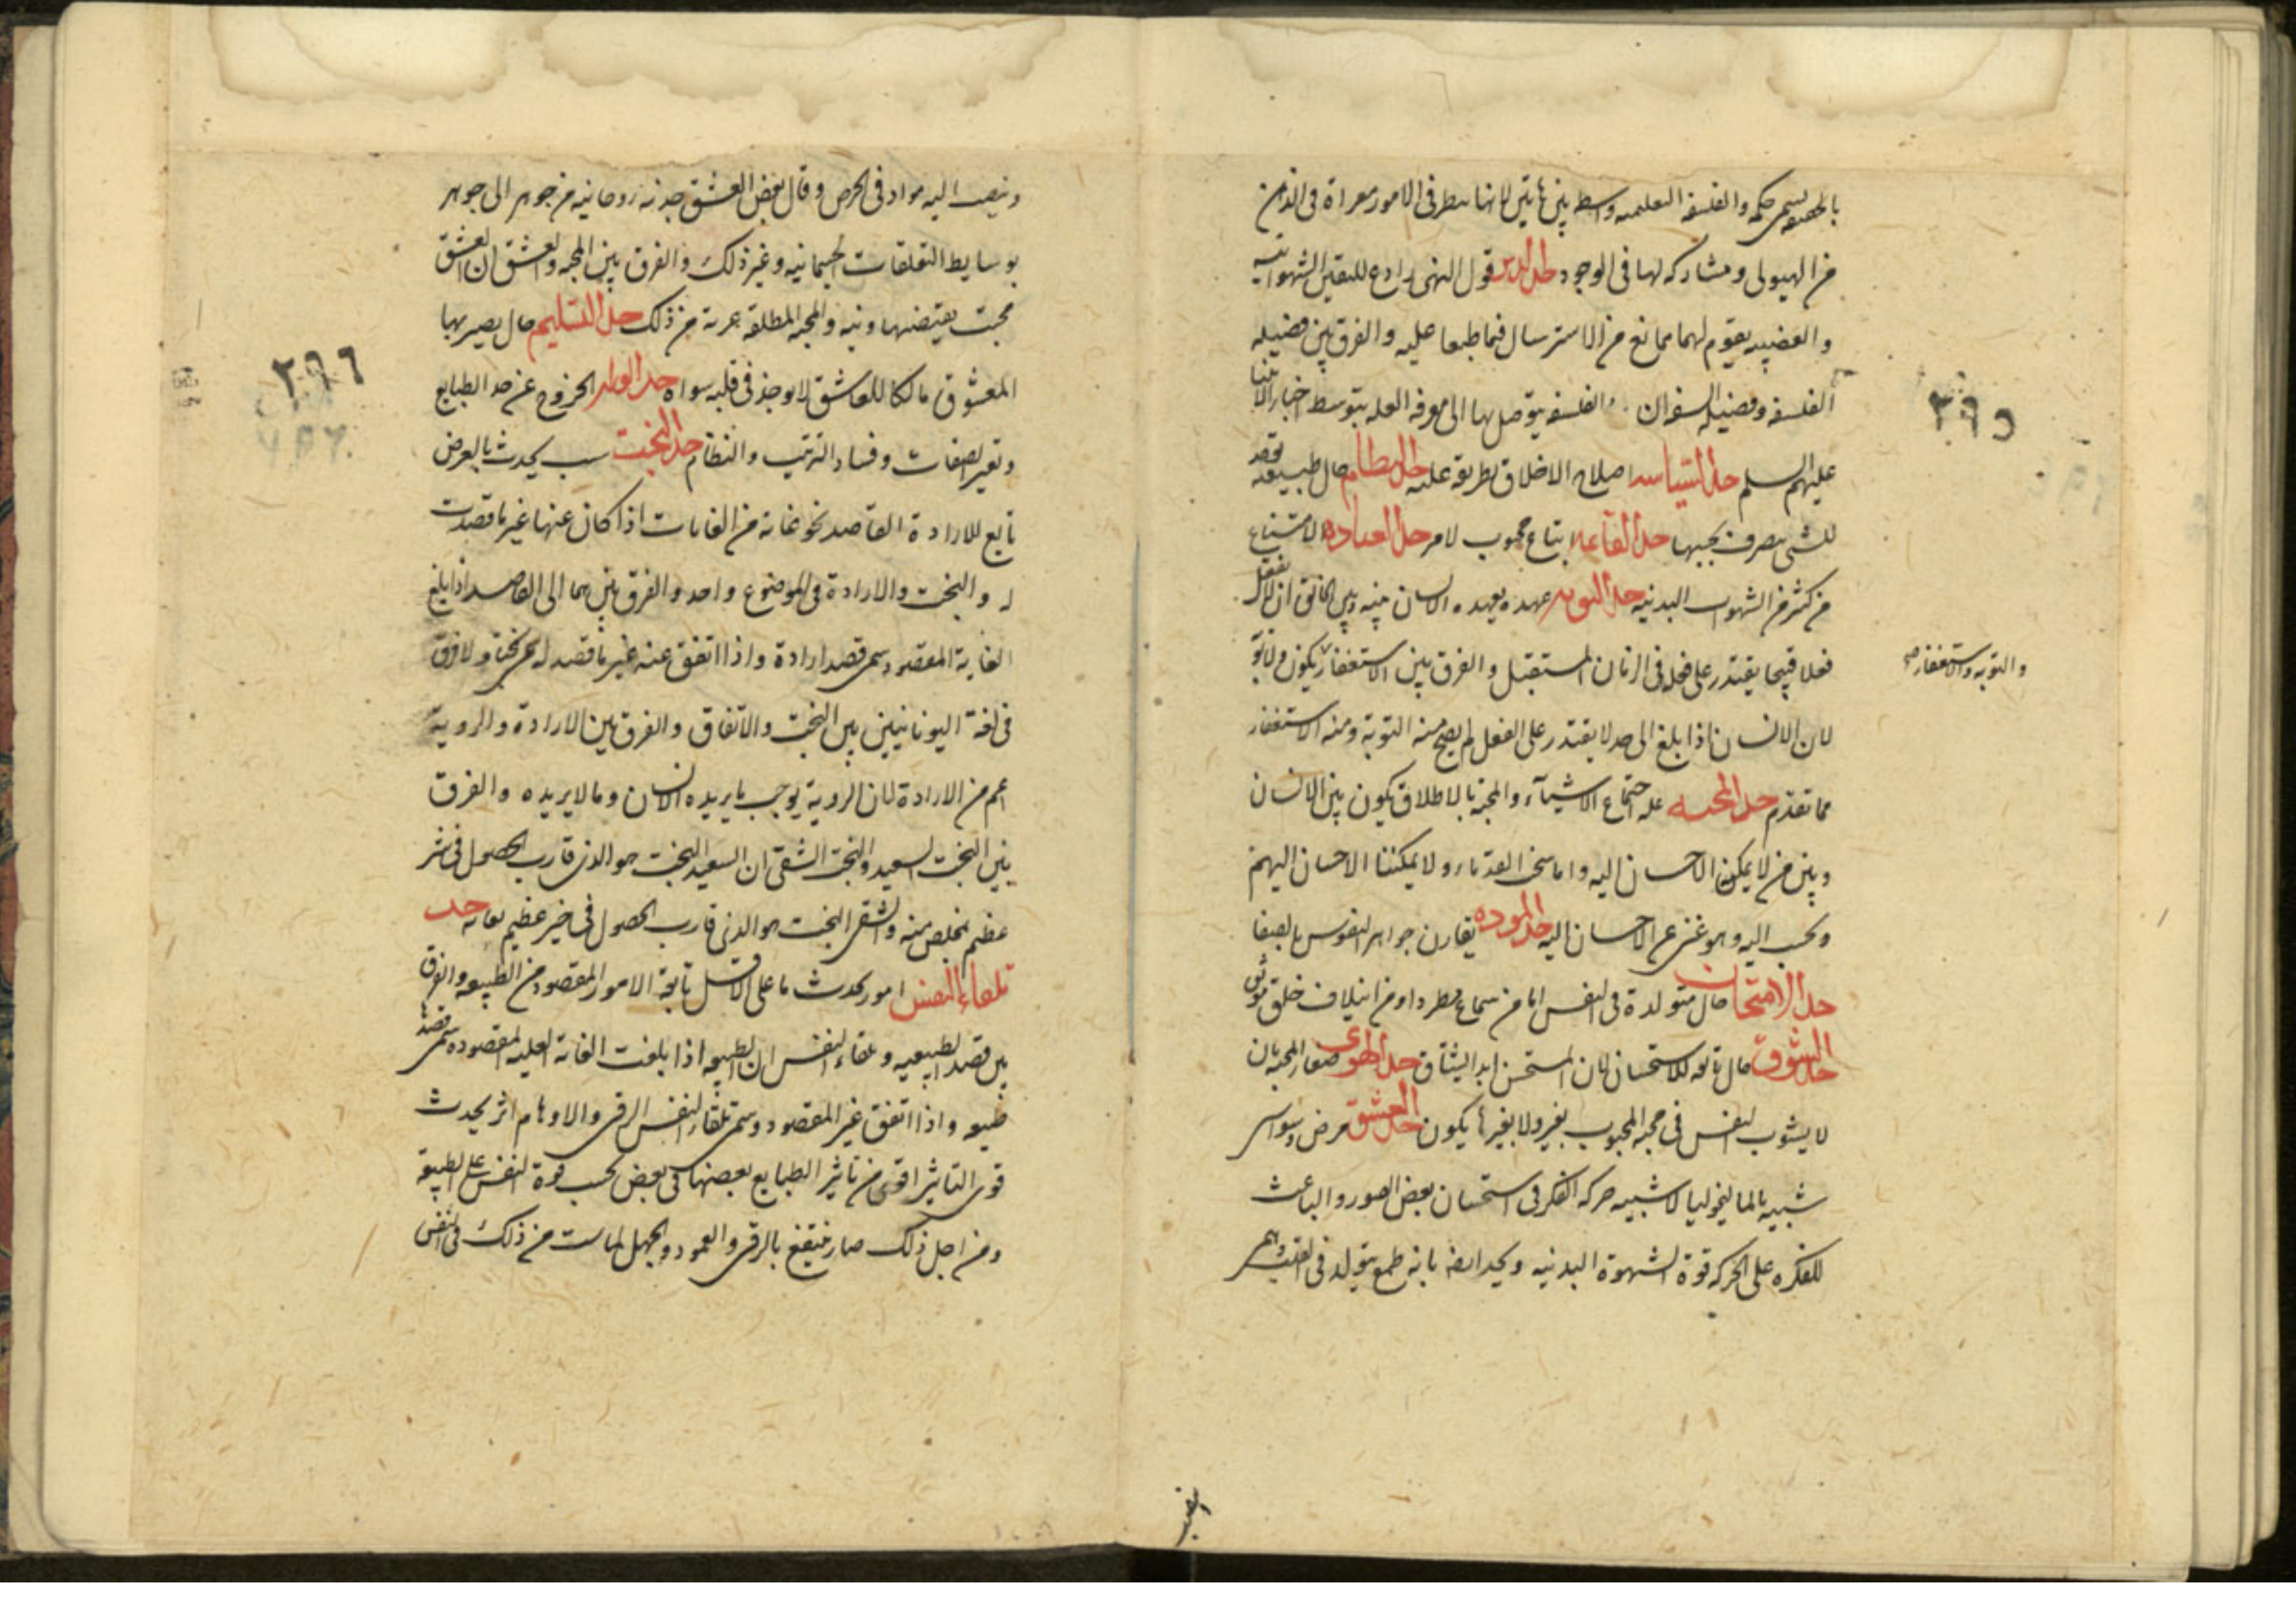 والفلسفة العلميه واسطه بين هاتين لانها ينظر فى الامور معراة فى الذهن
من الهيولى ومشاركه لها فى الوجود حد الدين قول الهى رادع للنفس الشهوانيه
والغضبيه يقوم لهما مما نع من الاسترسال فيما طبعا عليه والفرق بين فضيله
الفلسفه وفضيله ان الفلسفه يتوصل بها الى معرفه العله بتوسط اخبار الانبيا
عليهم السلم حد السياسه اصلاح الاخلاق بطريقه عليه حال طبيعه
للشى يتصرف بحبها حد اتباع محبوب لامر حد العباده الامتناع
من كثير من الشهوات البدنيه حد التوبه عهده يعهده الانسان بينه وبين الخالق ان لا يفعل
فعلا قبيحا يقتدر على فعله فى الزمان المستقبل والفرق بين الاستغفار يكون ولا توبه
والتوبه والاستغفار صح
لان الانسان اذا بلغ الى حد لا يقتدر على الفعل لم يصح منه التوبة ومنه الاستغفار
مما تقدم حد المحبه عله اجتماع الاشيآء والمحبة بالاطلاق يكون بين الانسان
وبين من لا يمكن الاحسان اليه واما نحن القدماء ولا يمكننا الاحسان اليهم
ونحب اليه وهو غنى عن الاحسان اليه حد الموده تقارن جواهر النفوس بالصفا
حد حال متولدة فى النفس اما من سماع مطرد او من ايتلاف خلق
حد الشوق حال تابعه للاستحسان لان المستحسن ابدا يشتاق حد الهوى المحبه بان
لا يشوب النفس فى محبه المحبوب بغير ولا يكون حد العشق مرض وسواسى
شبيه بالماليخوليا لا شبيه حركه الفكر فى استحسان بعض الصور والباعث
للفكره على الحركه قوة الشهوة البدنيه ويحد ايضا بانه طمع يتولد فى القلب
٣٩٥
اليه مواد فى الحرص وقال بعض العشق جذبه روحانيه من جوهر الى جوهر
بوسايط التعلقات الجسمانيه وغير ذلك والفرق بين المحبه والعشق ان العشق
محبت والمحبه المطلقه من ذلك حد التسليم حال يصير بها
المعشوق مالكا للعاشق لا يوجد فى قلبه سواه حد الخروج عن حد الطبايع
وتغير الصفات وفساد الترتيب والنظام حد البخت سبب يحدث بالعرض
تابع للارادة القاصد نحو غايه من الغايات اذا كان عنها غير ما قصدت
له والبخت والارادة فى الموضوع واحد والفرق بينهما الى القاصد اذا بلغ
الغاية المقصود سمى قصد ارادة واذا اتفق عنه غير ما قصد له سمى بختا ولا فرق
فى لغة اليونانيين بين البخت والاتفاق والفرق بين الارادة والروية
اعم من الارادة لان الروية يوجب ما يريده الانسان وما لا يريده والفرق
بين البخت السعيد والبخت الشقى ان السعيد البخت هو الذى قارب الحصول فى شر
عظيم تخلص منه والشقى البخت هو الذى قارب الحصول فى خير عظيم حد
تلقاء النفس امور يحدث ما على الاقل تابعة الامور المقصود من الطبيعه والفرق
بين قصد الطبيعيه وتلقاء النفس ان الطبيعه اذا بلغت الغاية المقصوده سمى قصدا
طبيعه واذا اتفق غير المقصود وسمى تلقاء النفس الرقى والاوهام اثر يحدث
قوى التاثير اقوى من تاثير الطبايع بعضها فى بعض بحسب قوة النفس على الطبيعة
ومن اجل ذلك صار ينتفع بالرقى والعهود والجهل من ذلك فى النفس
٣٩٦